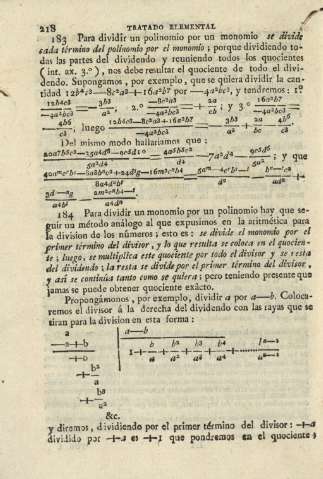 218 TRATADO ELEMENTAL
183 Para dividir un polinomio por un monomio se divide
cada término del polinomio por el monomio; porque dividiendo to-
das las partes del dividendo y reuniendo todos los quocientes
(int. ax. 3.º), nos debe resultar el quociente de todo el divi-
dendo. Supongamos, por exemplo, que se quiera dividir la can-
tidad por y tendremos: 1.º
2.º y 3.º
luego
Del mismo modo hallariamos que:
y que
184 Para dividir un monomio por un polinomio hay que se-
guir un método análogo al que expusimos en la aritmética para
la division de los números; esto es: se divide el monomio por el
primer término del divisor, y lo que resulta se coloca en el quocien-
te; luego, se multiplica este quociente por todo el divisor y se resta
del dividendo; la resta se divide por el primer término del divisor,
y asi se continúa tanto como se quiera; pero teniendo presente que
jamas se puede obtener quociente exâcto.
Propongámonos, por exemplo, dividir a por a—b. Coloca-
remos el divisor á la derecha del dividendo con las rayas que se
tiran para la division en esta forma:
a
a—b
—a+b
+b
&c.
y diremos, dividiendo por el primer término del divisor: +a
dividido por +a es +1 que pondremos en el quociente;